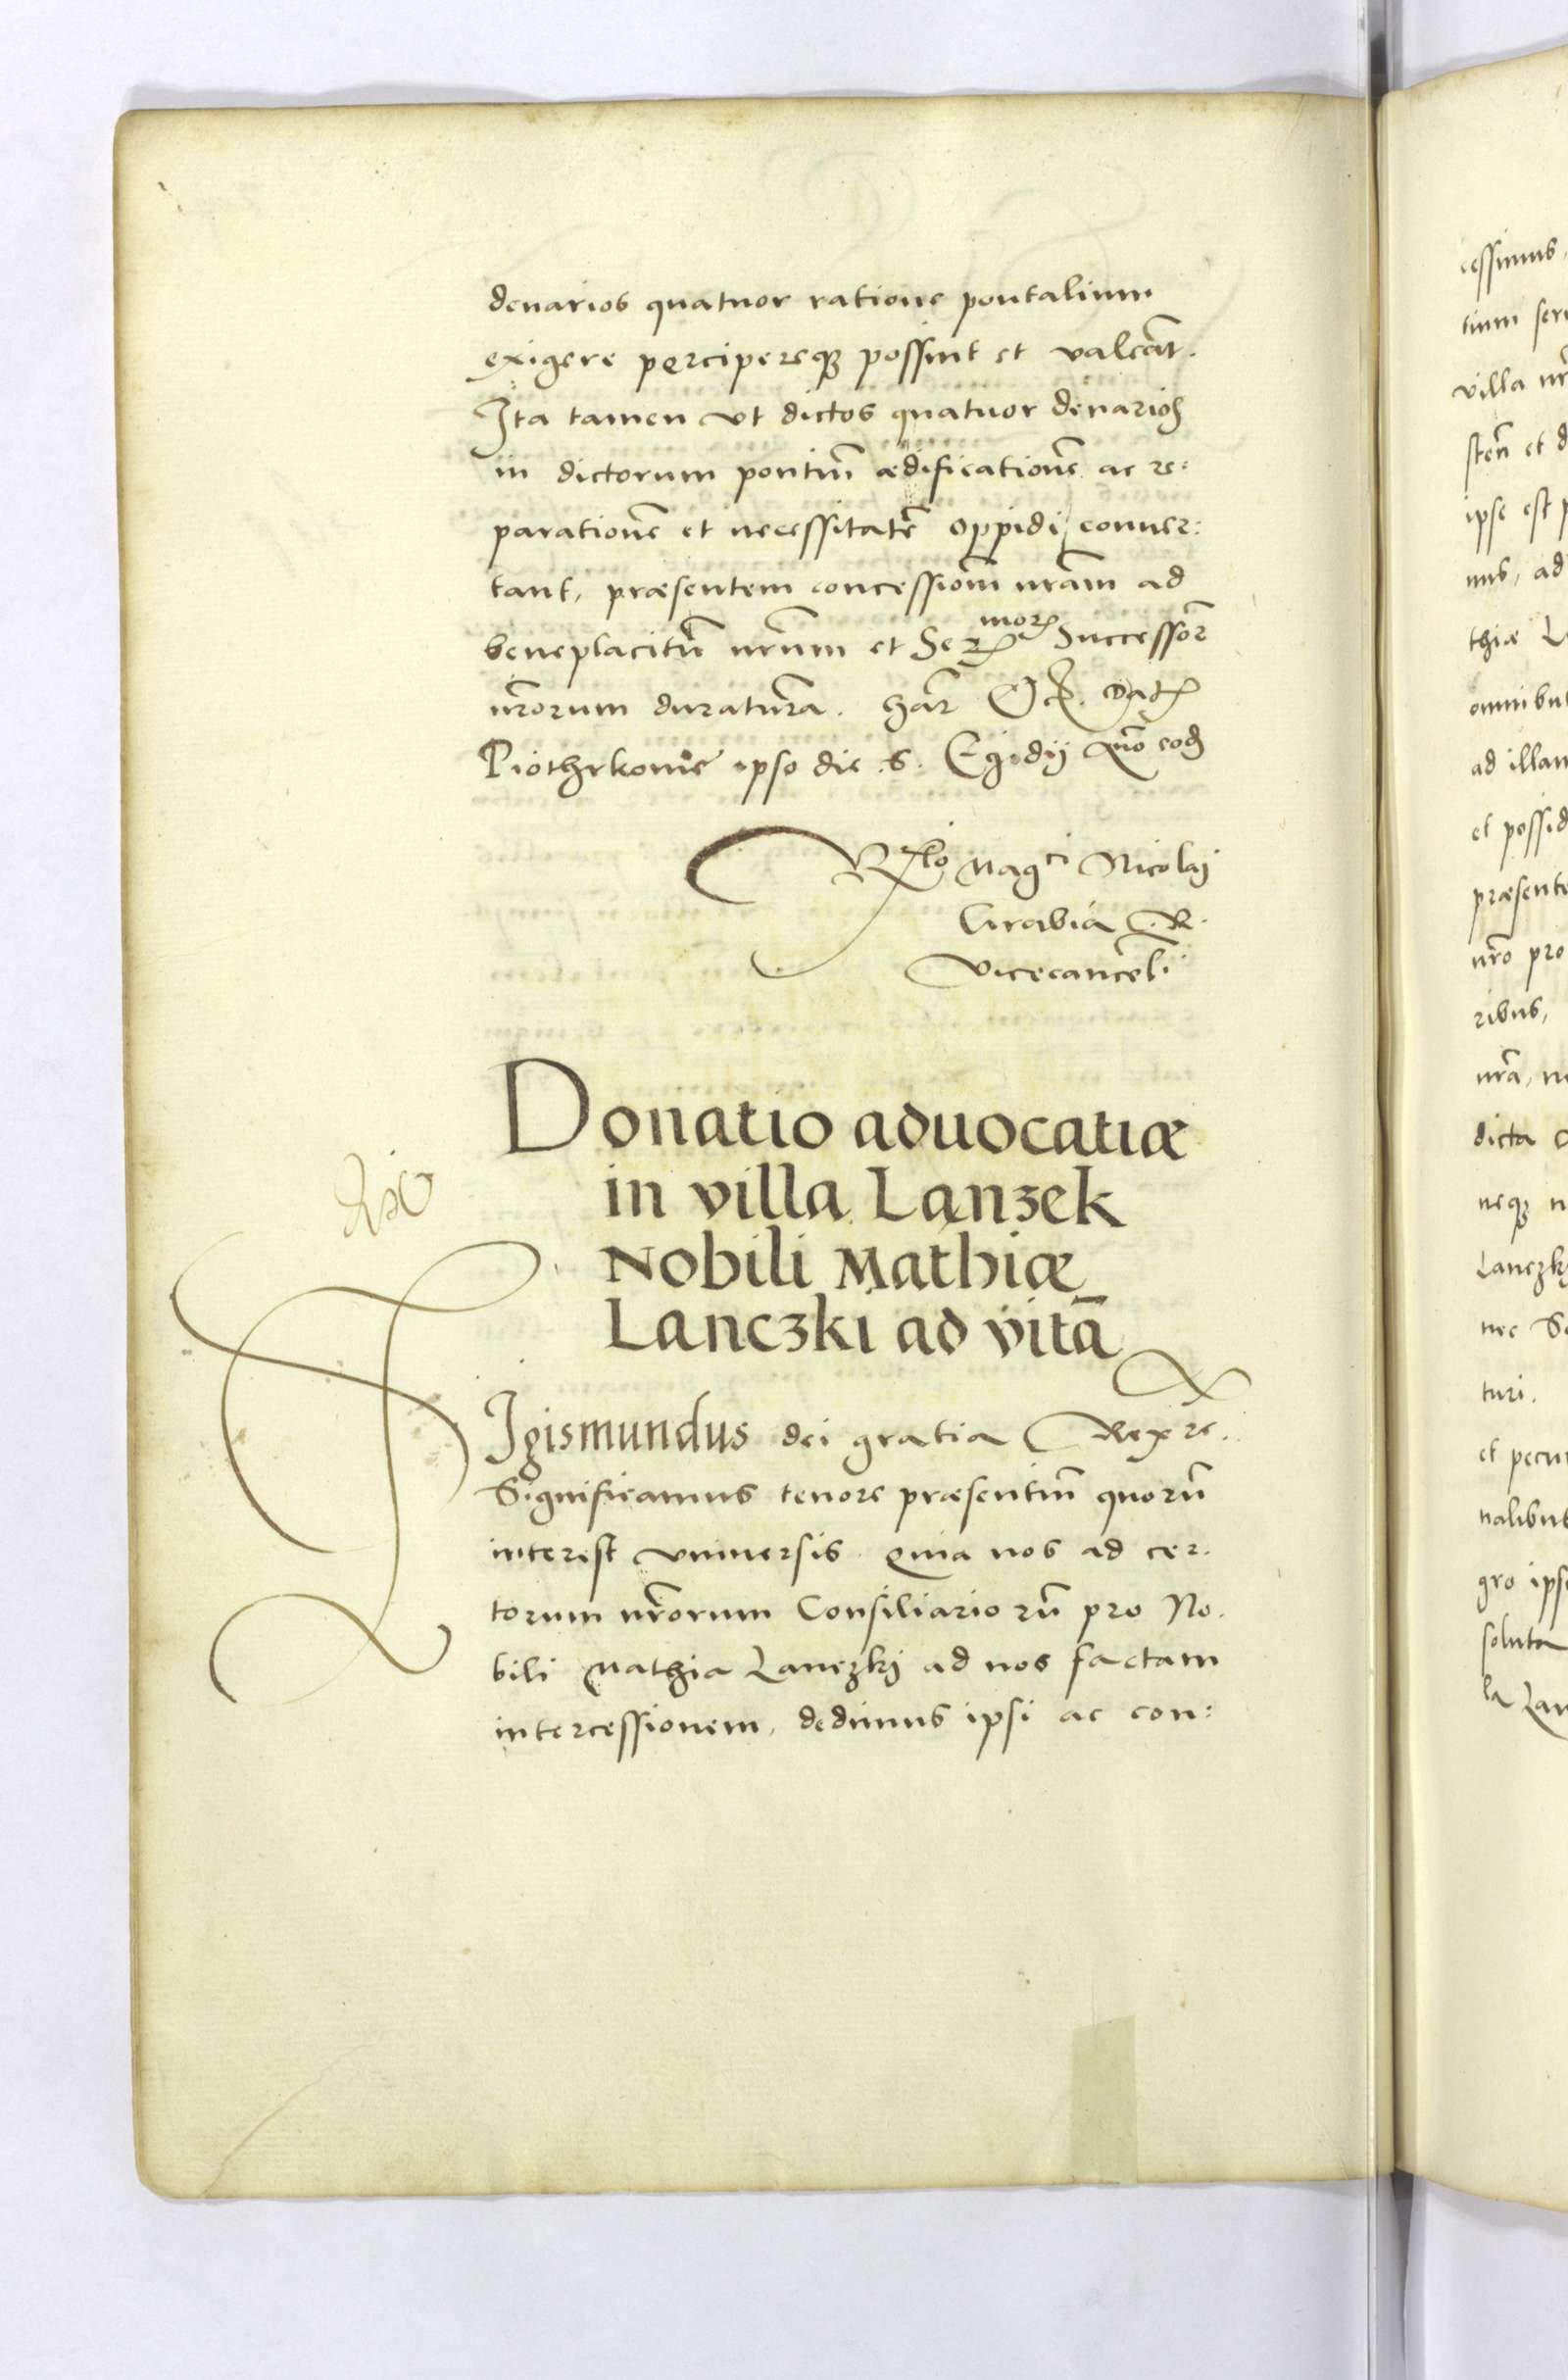 denarios quatuor ratione pontalium
exigere percipereq3 possint et valeāt.
Ita tamen vt dictos quatuor denarios
in dictorum pontiū ædificationē ac re:
parationē et necessitatē oppidi conuer:
tant, præsentem concessionē nr̄am ad
beneplacitū nr̄um et Ser morꝝ Successor̄
nr̄orum duraturā. Har̄ Datꝝ
Piothrkowiæ ipso die .S. Egidij eod
Rlo Mag ci Nicolaj
Grabia R.
Vicecancel.
Donatio aduocatiæ
in villa Lanzek
Nobili Mathiæ
Lanczki ad vitā
SIgismundus dei gratia Rex ꝛc.
Significamus tenore præsentiū quorū
interest vniuersis. Quia nos ad cer.
torum nr̄orum Consiliariorū pro No.
bili Mathia Lanczkj ad nos factam
intercessionem, dedimus ipsi ac con:
cessimus,
villa
et d
ipse est
ad
omnibus
ad illam
præsente
nr̄o pro
ribus,
nr̄a,
dicta
neq3
Lanczk
nec
turi.
et pecun
nalibus
gro ipse
soluta
la Lan